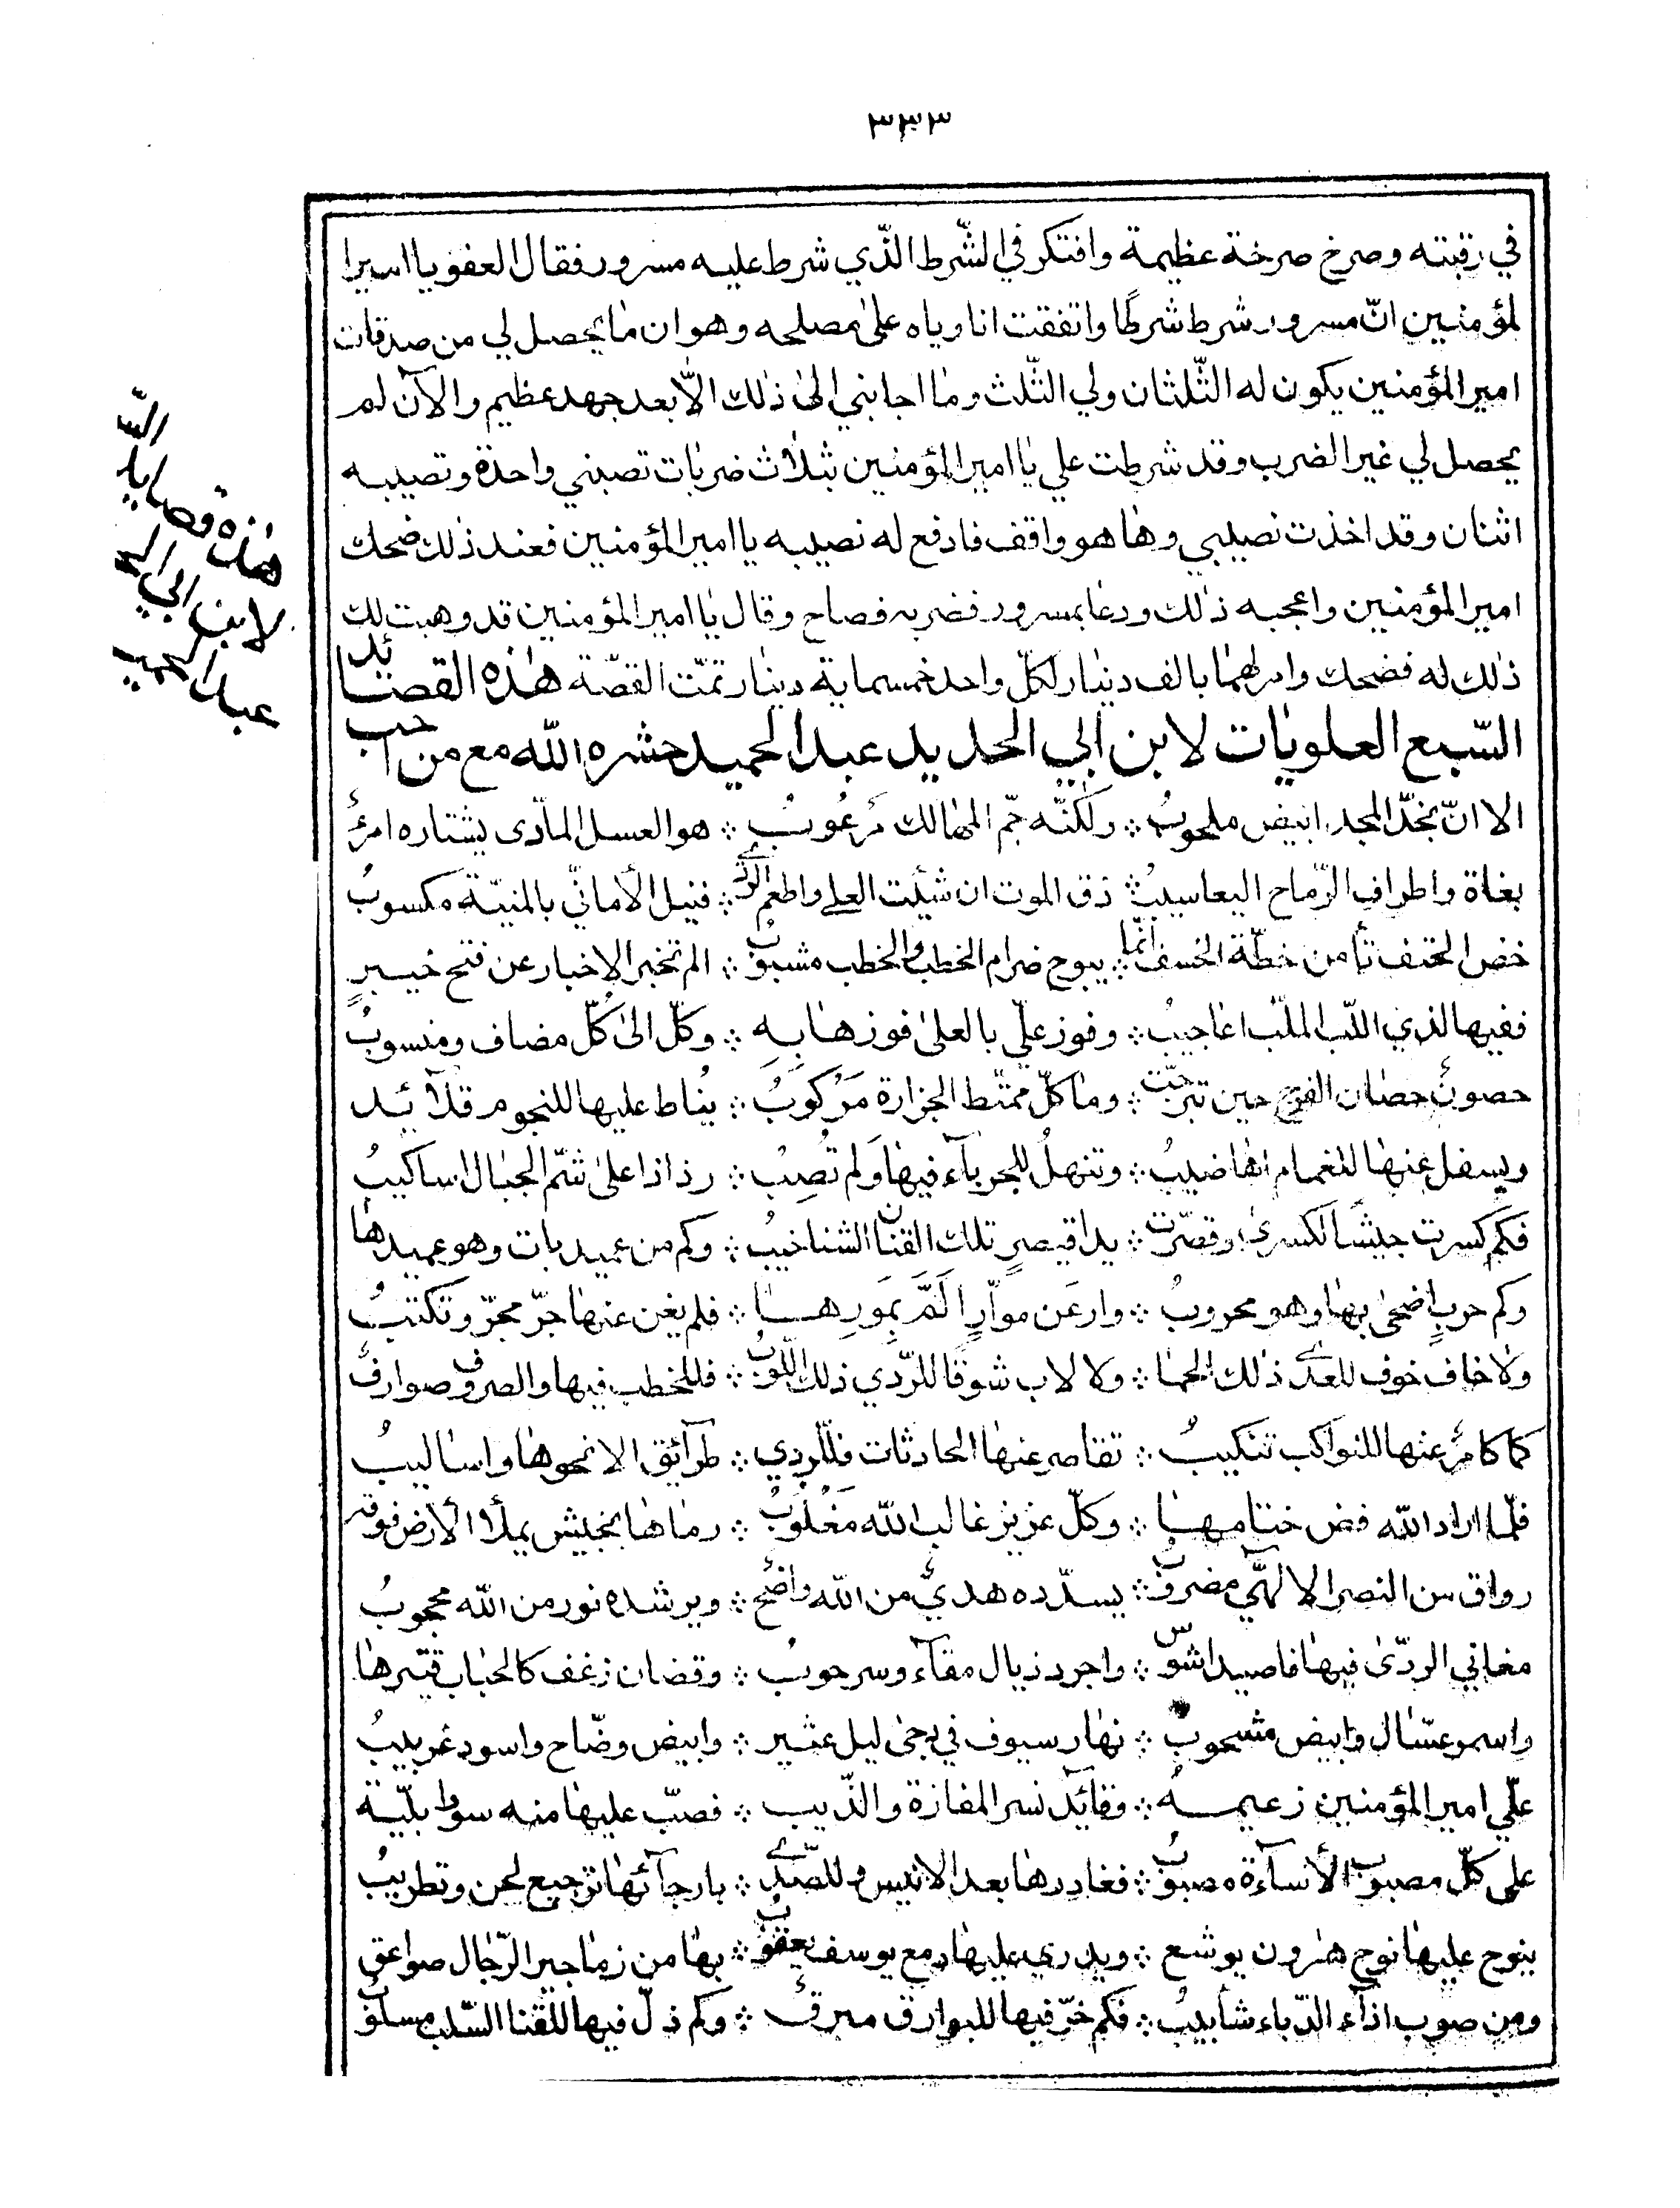 ٣٣٣
في رقبته وصرخ صرخة عظيمة وافتكر في الشّرط الّذي شرط عليه مسرور فقال العفو يا اميرا
لمؤمنين انّ مسرور شرط شرطًا واتفقت انا وياه على مصلحه وهو ان ما يحصل لي من صدقات
امير المؤمنين يكون له الثّلثان ولي الثّلث وما اجابني الى ذلك الّا بعد جهد عظيم والآن لم
يحصل لي غير الضرب وقد شرطت علي يا امير المؤمنين بثلاث ضربات تصبني واحدة وتصيبه
اثنان وقد اخذت نصيبي وها هو واقف فادفع له نصيبه يا امير المؤمنين فعند ذلك ضحك
امير المؤمنين واعجبه ذلك ودعا بمسرور فضربه فصاح وقال يا امير المؤمنين قد وهبت لك
ذلك له فضحك وامر لهما بالف دينار لكلّ واحد خمسماية دينار تمّت القصّة هذه القصائد
السّبع العلويات لابن ابي الحديد عبد الحميد حشره الله مع من احب
الا انّ نجد المجد ابيض ملحوبُ ؞ ولكنّه جمّ المهالك مرعوبُ ؞ هو العسل الماذى يشتاره امرءٌ
بغاة واطراف الرّماح اليعاسيبُ ؞ ذق الموت ان شئت العلى واطعم الردى ؞ فنيل الأمانّي بالمنيّة مكسوبُ
خض الحتف تأمن خطّة الخسف انّما ؞ يبوح ضرام الخطب والخطب مشبوبُ ؞ الم تخبر الاخبار عن فتح خيبرٍ
ففيها لذي اللّب الملبّ اعاجيبُ ؞ وفوز علّي بالعلى فوزها به ؞ وكلّ الى كلّ مضاف ومنسوبُ
حصونٌ حصان الفرج حين تبرّجت ؞ وما كلّ ممتّط الجزارة مَرْكوبُ ؞ يُناط عليها للنجوم قلائد
ويسفل عنها للغمام اهاضيبُ ؞ وتنهلُ للجرباء فيها ولم تُصِبْ ؞ رذاذا على شمّ الجبال اساكيبُ
فكم كسرت جيشًا لكسرى وقصّرت ؞ يدا قيصرٍ تلك القنان الشناخيبُ ؞ وكم من عميد بات وهو عميدها
وكم حربٍ اضحى بها وهو محروبُ ؞ وارعَن موّارٍ المَّ بمَورِها ؞ فلم يغن عنها جرّ مجرّ وتكتيبُ
ولا خاف خوف للعدى ذلك الحما ؞ ولا لاب شوقًا للرّدي ذلك اللّوبُ ؞ فللخطب فيها والصروف صوارفٌ
كما كا مرٌ عنها للنواكب تنكيبُ ؞ تقاصر عنها الحادثات فللّردي ؞ طرآئق الا نحوها واساليبُ
فلّما اراد الله فض ختامها ؞ وكلّ عزيز غالب الله مَغْلوُبُ ؞ رماها بجيش يملأ الأرض فوقه
رواق من النصر الالهّي مضروبُ ؞ يسدّده هديٌ من الله واضحٌ ؞ ويرشده نور من الله محجوبُ
مغاني الردّى فيها فاصيد اشوس ؞ واجرد ذيال مقآء وسرحوبُ ؞ وقضان زغف كالحباب قتيرها
واسمر عسّال وابيض مشحوبُ ؞ نهار سيوف في دجى ليل عثير ؞ وابيض وضّاح واسود غربيبُ
علّي امير المؤمنين زعيمه ؞ وقائد نسر المفازة والذّيب ؞ فصبّ عليها منه سوط بليّة
على كلّ مصبوب الأسآءة مصبوبُ ؞ فغادرها بعد الانيس وللصّدى ؞ بارجآئها ترجيع لحن وتطريبُ
ينوح عليها نوح هرون يوشع ؞ ويذري عليها دمع يوسف يعقوبُ ؞ بها من زماجير الرّجال صواعق
ومن صوب اذآء الدّباء شآبيبُ ؞ فكم خرّ فيها للبوارق مبرقٌ ؞ وكم ذلّ فيها للقنا السّلب مسلوبُ
هذه قصايد السّ
لابن ابي الح
عبد الحميد